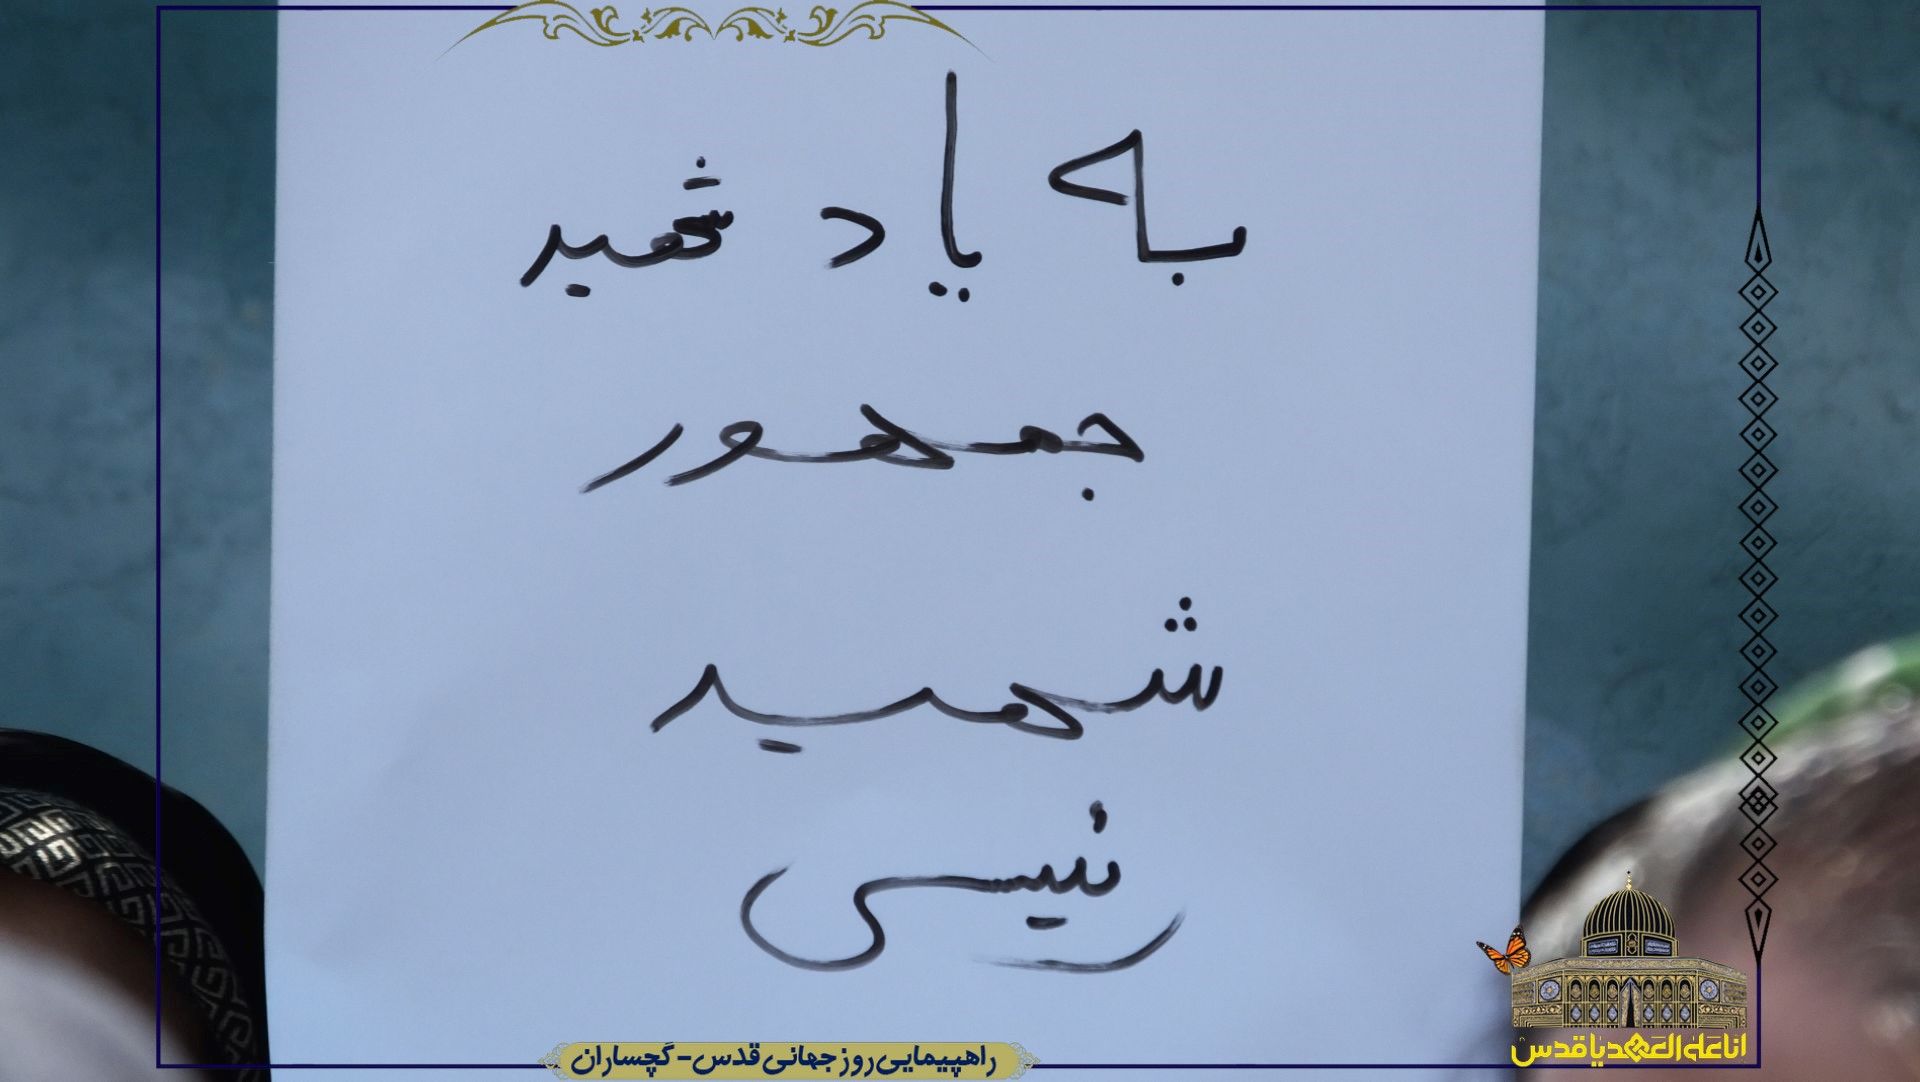 به یاد شهید
جمهور
شهید
رئیسی
راهپیمایی روز جهانی قدس - گچساران
انا علی العهد یا قدس